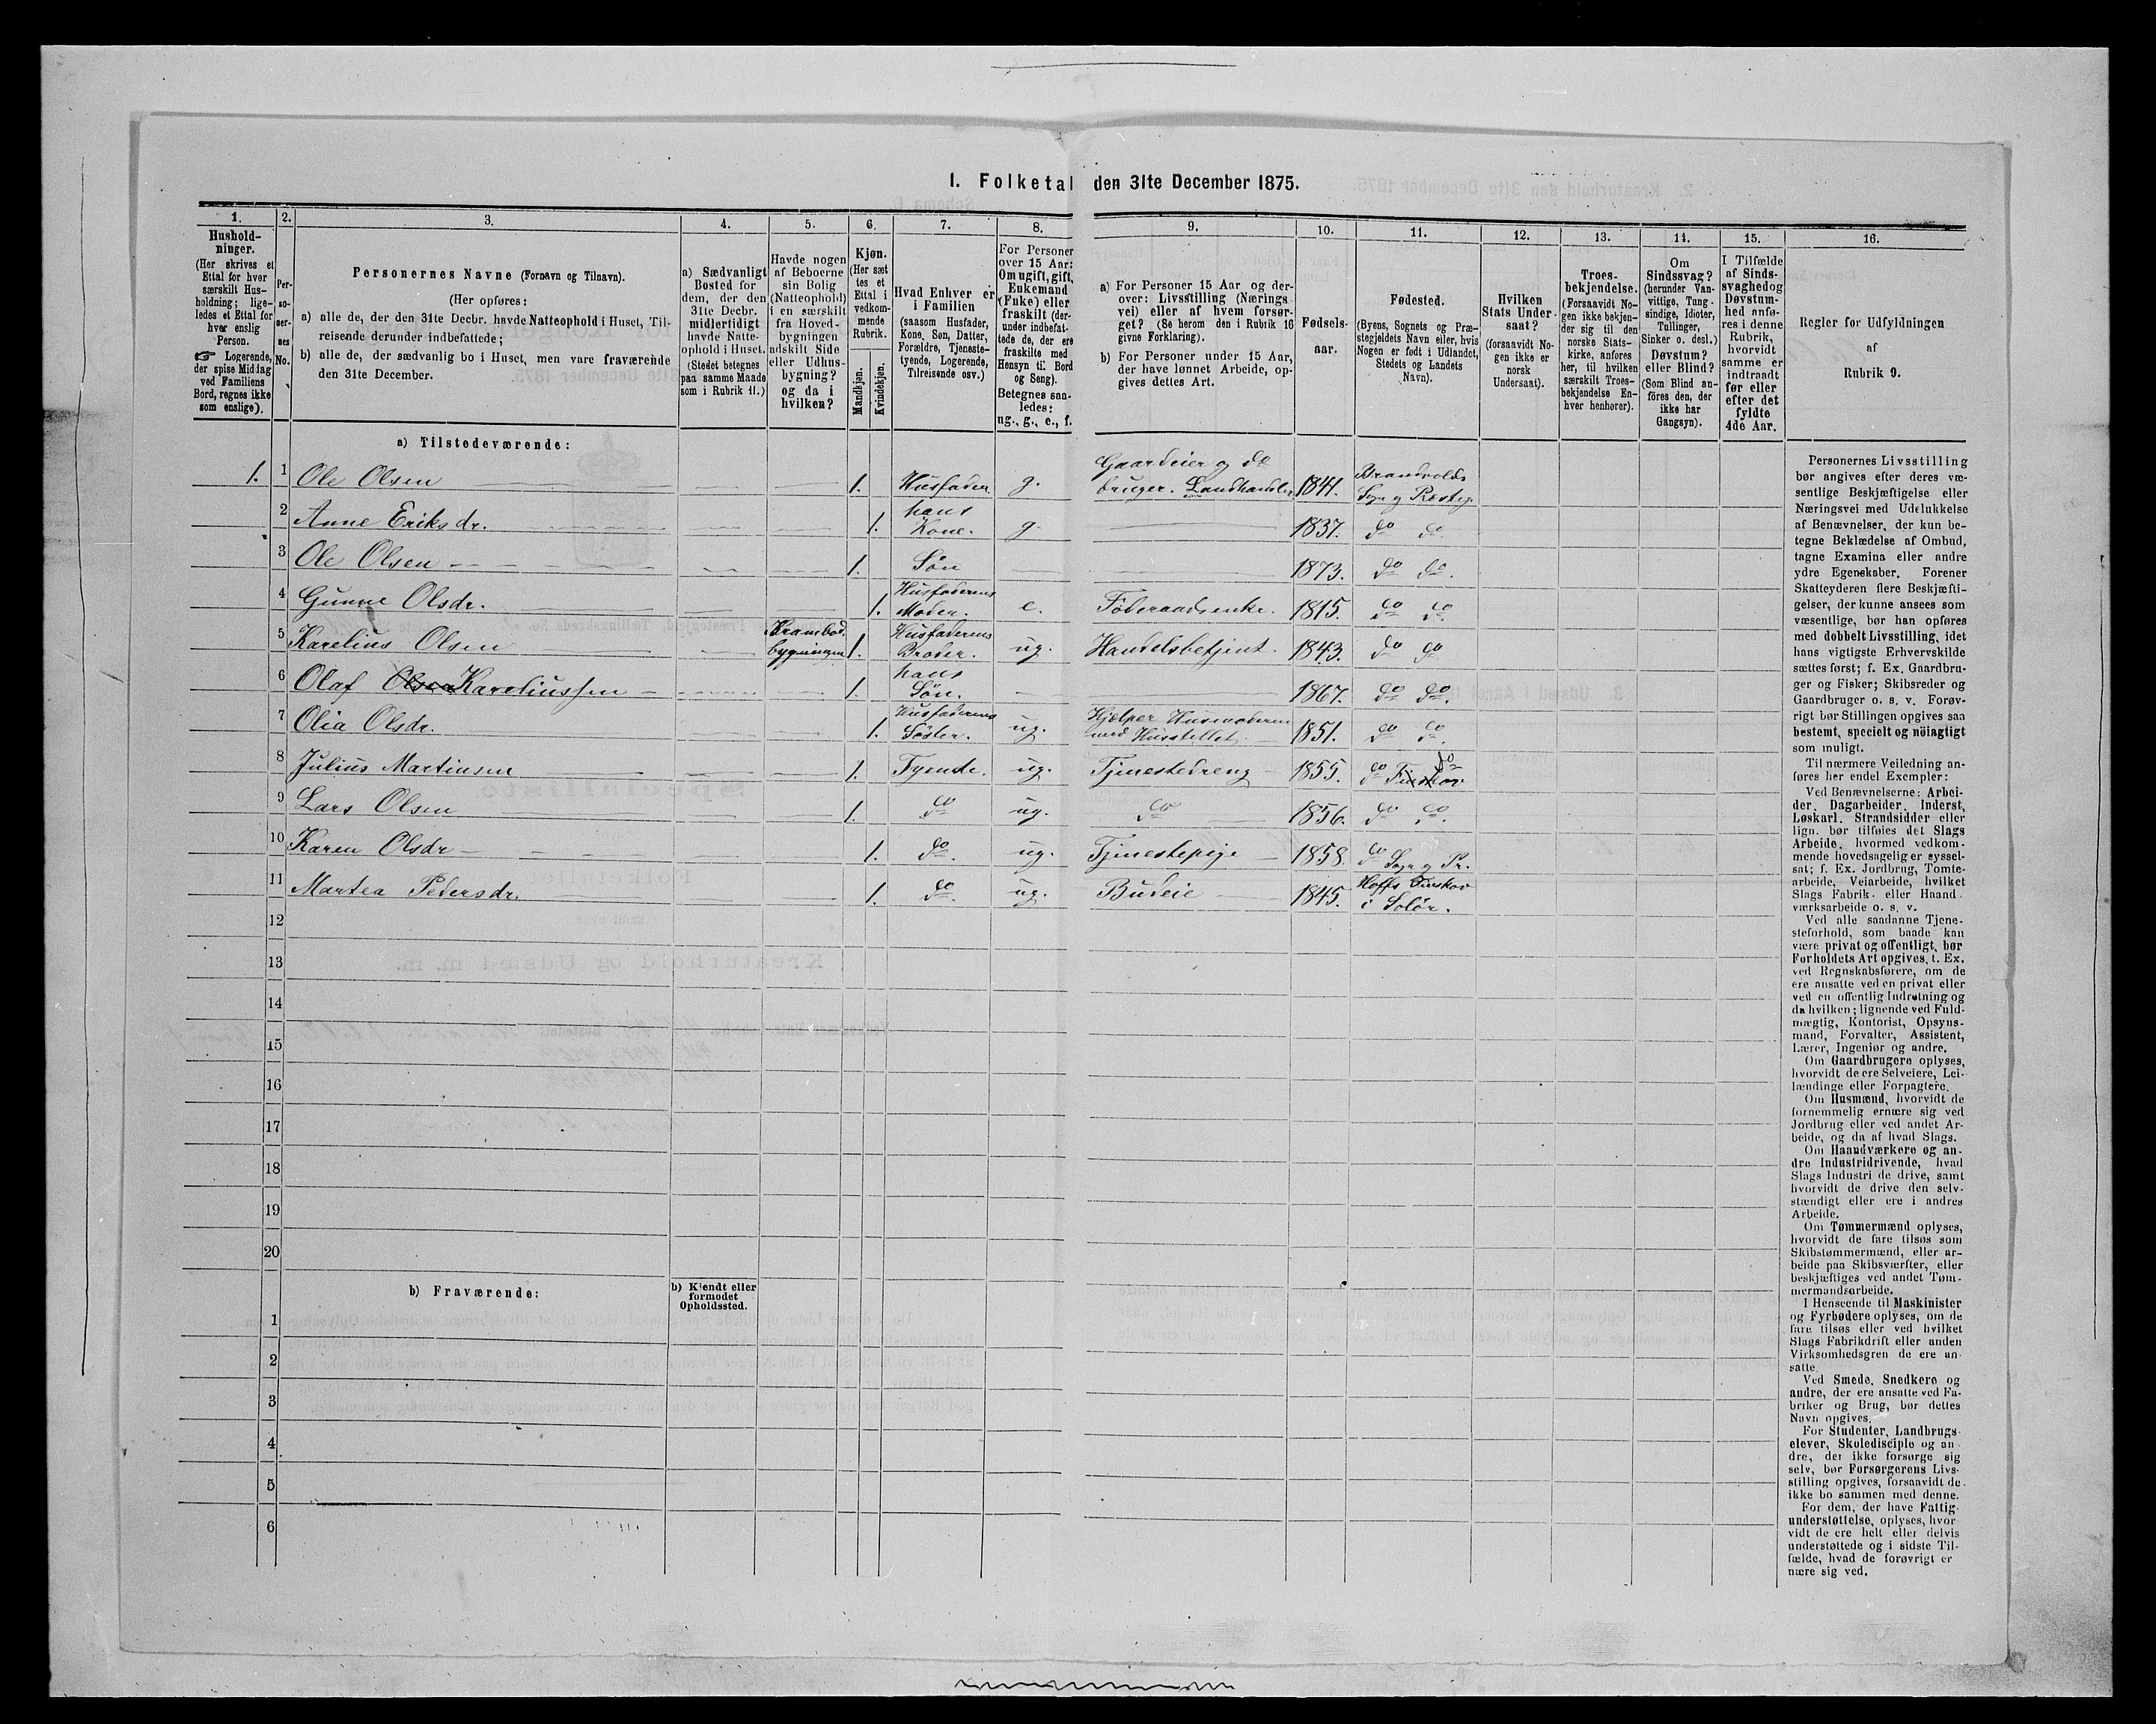 I. Folketal den 31te December 1875.
1. 2. 3. 4. 5. 6. 7. 8. 9. 10. 11. 12. 13. 14. 15. 16.
Hushold-
ninger.
(Her skrives et
Ettal for hver
særskilt Hus-
holdning; lige-
ledes et Ettal for
hver enslig
Person.
☞ Logerende,
der spise Middag
ved Familiens
Bord, regnes ikke
som enslige).
Per-
so-
ner-
nes
No.
Personernes Navne (Fornavn og Tilnavn).
(Her opføres:
a) alle de, der den 31te Decbr. havde Natteophold i Huset, Til-
reisende derunder indbefattede;
b) alle de, der sædvanlig bo i Huset, men vare fraværende
den 31te December.
a) Sædvanligt
Bosted for
dem, der den
31te Decbr.
midlertidigt
havde Natte-
ophold i Huset.
(Stedet betegnes
paa samme Maade
som i Rubrik 11.)
Havde nogen
af Beboerne
sin Bolig
(Natteophold)
i en særskilt
fra Hoved-
bygningen
adskilt Side
eller Udhus-
bygning?
og da i
hvilken?
Kjøn.
(Her sæt
tes et
Ettal i
vedkom-
mende
Rubrik.
Mandkjøn.
Kvindekjøn.
Hvad Enhver er
i Familien
(saasom Husfader,
Kone, Søn, Datter,
Forældre, Tjeneste-
tyende, Logerende,
Tilreisende osv.)
For Personer
over 15 Aar:
Om ugift, gift,
Enkemand
(Enke) eller
fraskilt (der-
under indbefat-
tede de, der ere
fraskilte med
Hensyn til Bord
og Seng).
Betegnes saa-
ledes:
ug., g., e., f.
a) For Personer 15 Aar og der-
over: Livsstilling (Nærings
vei) eller af hvem forsør-
get? (Se herom den i Rubrik 16
givne Forklaring).
b) For Personer under 15 Aar,
der have lønnet Arbeide, op-
gives dettes Art.
Fødsels-
aar.
Fødested.
(Byens, Sognets og Præ-
stegjeldets Navn eller, hvis
Nogen er født i Udlandet,
Stedets og Landets
Navn).
Hvilken
Stats Under-
saat?
(forsaavidt No-
gen ikke er
norsk
Undersaat).
Troes-
bekjendelse.
(Forsaavidt No-
gen ikke bekjen-
der sig til den
norske Stats-
kirke, anføres
her, til hvilken
særskilt Troes-
bekjendelse En-
hver henhører).
Om
Sindssvag?
(herunder Van-
vittige, Tung-
sindige, Idioter,
Tullinger,
Sinker o. desl.)
Døvstum?
eller Blind?
(Som Blind an-
føres den, der
ikke har
Gangsyn).
I Tilfælde
af Sinds-
svaghed og
Døvstum-
hed anfø-
res i denne
Rubrik,
hvorvidt
samme er
indtraadt
før eller
efter det
fyldte
4de Aar.
Regler for Udfyldningen
af
Rubrik 9.
a) Tilstedeværende:
1. 1 Ole Olsen 1. Husfader g. Gaardeier og do bruger. Landhandler 1841. Brandvolds Sogn og Præstg.
2 Anne Eriksdr. 1. hans Kone. g. 1837. do do.
3 Ole Olsen 1. Søn 1873. do do.
4 Gunne Olsdr. 1. Husfaderens Moder. e. Føderaadsenke. 1815. do do.
5 Karelius Olsen Krambod bygningen 1. Husfaderens Broder. ug. Handelsbetjent. 1843. do do
6 Olaf Olsen Kareliussen 1. hans Søn. 1867. do do.
7 Olia Olsdr. 1. Husfaderens Søster. ug. Hjelper Husmoderen med Husstellet. 1851. do do.
8 Julius Martinsen 1. Tyende. ug. Tjenestedreng 1855. do Finskov do
9 Lars Olsen 1. do ug. do 1856. do do.
10 Karen Olsdr 1. do. ug. Tjenestepige 1858. do Sogn og Pr.
11 Martea Pedersdr. 1. do. ug. Budeie 1845. Hoffs Finskov i Solør.
12
13
14
15
16
17
18
19
20
b) Fraværende:
b) Kjendt eller
formodet
Opholdssted.
1
2
3
4
5
6
Personernes Livsstilling
bør angives efter deres væ-
sentlige Beskjæftigelse eller
Næringsvei med Udelukkelse
af Benævnelser, der kun be-
tegne Beklædelse af Ombud,
tagne Examina eller andre
ydre Egenskaber. Forener
Skatteyderen flere Beskjæfti-
gelser, der kunne ansees som
væsentlige, bør han opføres
med dobbelt Livsstilling, idet
hans vigtigste Erhvervskilde
sættes først; f. Ex. Gaardbru-
ger og Fisker; Skibsreder og
Gaardbruger o. s. v. Forøv-
rigt bør Stillingen opgives saa
bestemt, specielt og nöiagtigt
som muligt.
Til nærmere Veiledning an-
føres her endel Exempler:
Ved Benævnelserne: Arbei-
der, Dagarbeider, Inderst,
Løskarl, Strandsidder eller
lign. bør tilføies det Slags
Arbeide, hvormed vedkom-
mende hovedsagelig er syssel-
sat; f. Ex. Jordbrug, Tomte-
arbeide, Veiarbeide, hvilket
Slags Fabrik- eller Haand
værksarbeide o. s. v.
Ved alle saadanne Tjene-
steforhold, som baade kan
være privat og offentligt, bør
Forholdets Art opgives, t. Ex.
ved Regnskabsførere, om de
ere ansatte ved en privat eller
ved en offentlig Indretning og
da hvilken; lignende ved Fuld-
mægtig, Kontorist, Opsyns-
mand, Forvalter, Assistent,
Lærer, Ingeniør og andre.
Om Gaardbrugere oplyses,
hvorvidt de ere Selveiere, Lei-
lændinge eller Forpagtere.
Om Husmænd, hvorvidt de
fornemmelig ernære sig ved
Jordbrug eller ved andet Ar-
beide, og da af hvad Slags.
Om Haandværkere og an-
dre Industridrivende, hvad
Slags Industri de drive, samt
hvorvidt de drive den selv-
stændigt eller ere i andres
Arbeide.
Om Tømmermænd oplyses,
hvorvidt de fare tilsøs som
Skibstømmermænd, eller ar-
beide paa Skibsværfter, eller
beskjæftiges ved andet Tøm-
mermandsarbeide.
I Henseende til Maskinister
og Fyrbødere oplyses, om de
fare tilsøs eller ved hvilket
Slags Fabrikdrift eller anden
Virksomhedsgren de ere an-
satte.
Ved Smede, Snedkere og
andre, der ere ansatte ved Fa-
briker og Brug, bør dettes
Navn opgives.
For Studenter, Landbrugs-
elever, Skoledisciple og an-
dre, der ikke forsørge sig
selv, bør Forsørgerens Livs-
stilling opgives, forsaavidt de
ikke bo sammen med denne.
For dem, der have Fattig-
understøttelse, oplyses, hvor
vidt de ere helt eller delvis
understøttede og i sidste Til-
fælde, hvad de forøvrigt er
nære sig ved.